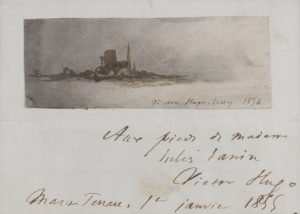 Victor Hugo. Jersey 1854
Aux pieds de madame
Jules Janin
Victor Hugo
Marine Terrace, 1er janvier 1855